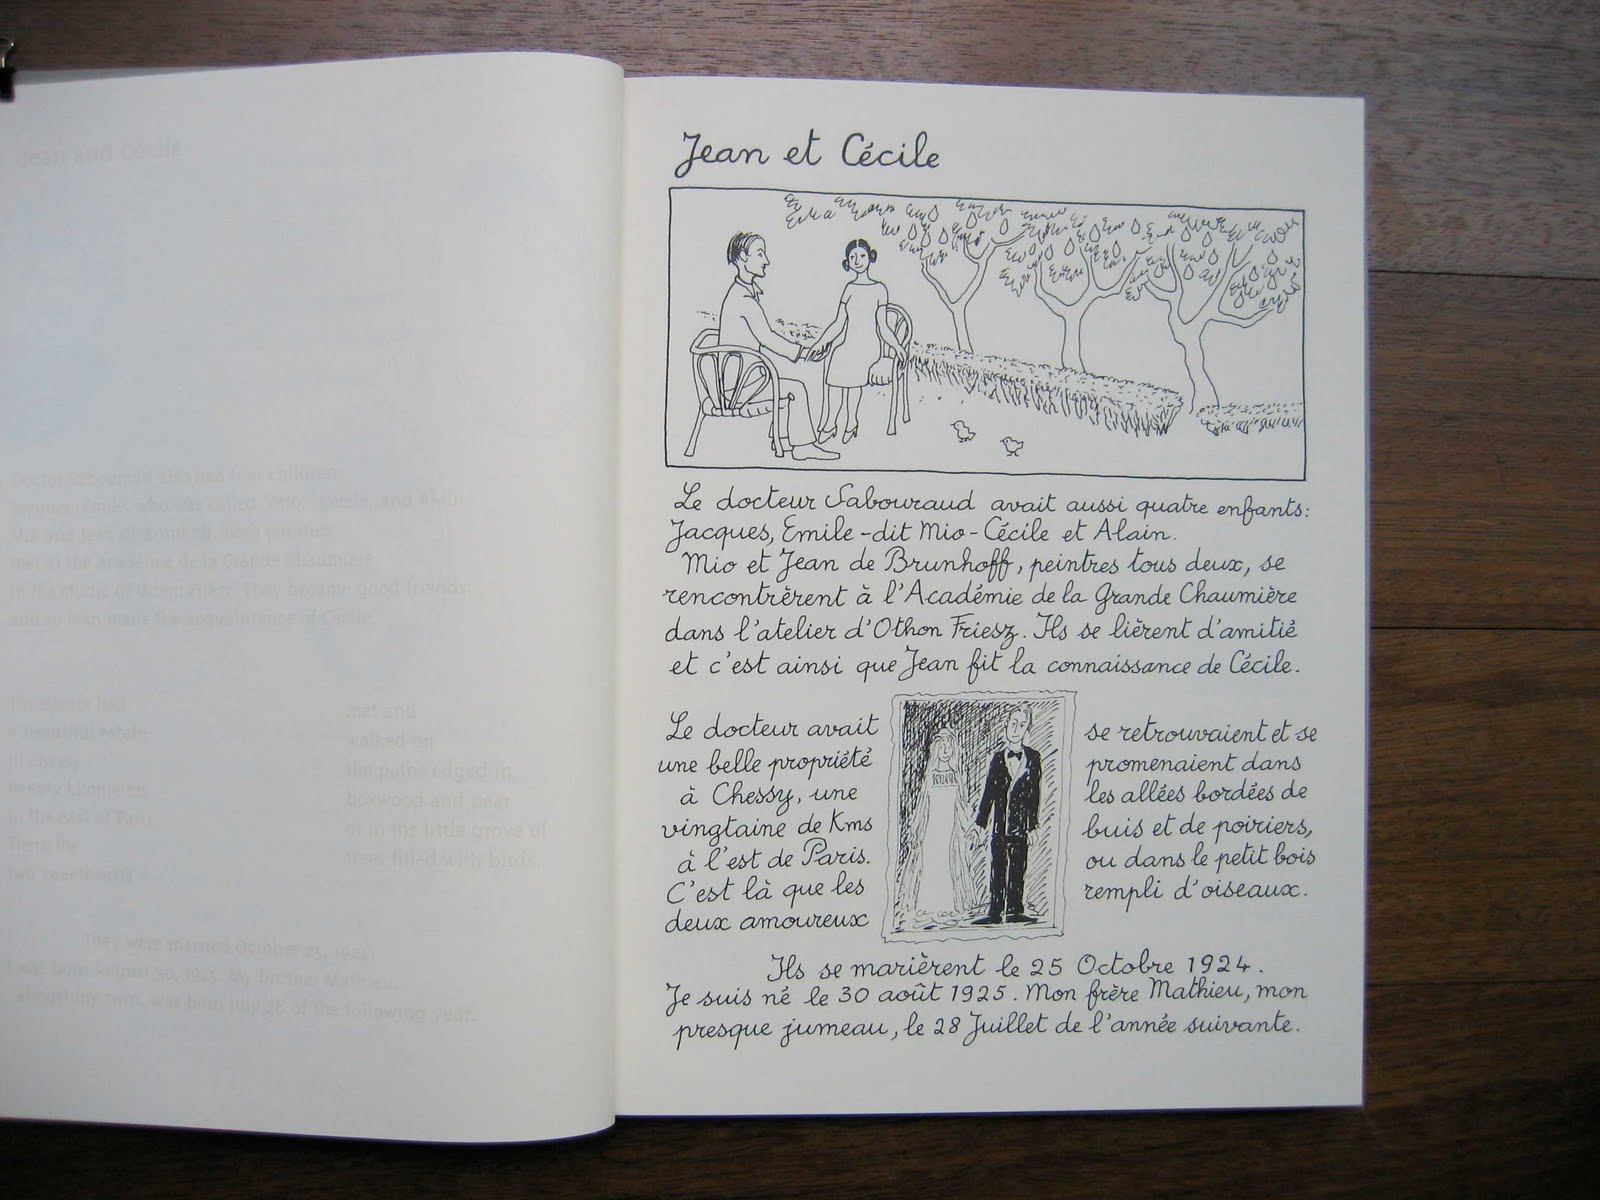 Jean and Cécile
Doctor Sabouraud also had four children:
Jacques, Emile, who was called "Mio," Cécile, and Alain.
Mio and Jean de Brunhoff, both painters,
met at the Académie de la Grande Chaumière
in the studio of Othon Friesz. They became good friends,
and so Jean made the acquaintance of Cécile.
The doctor had
a beautiful estate
in Chessy,
twenty kilometers
to the east of Paris.
There the
two sweethearts
met and
walked on
the paths edged in
boxwood and pear
or in the little grove of
trees filled with birds.
They were married October 25, 1924.
I was born August 30, 1925. My brother Mathieu,
almost my twin, was born July 28 of the following year.
Jean et Cécile
Le docteur Sabouraud avait aussi quatre enfants:
Jacques, Emile - dit Mio - Cécile et Alain.
Mio et Jean de Brunhoff, peintres tous deux, se
rencontrèrent à l'Académie de la Grande Chaumière
dans l'atelier d'Othon Friesz. Ils se lièrent d'amitié
et c'est ainsi que Jean fit la connaissance de Cécile.
Le docteur avait
une belle propriété
à Chessy, une
vingtaine de Kms
à l'est de Paris.
C'est là que les
deux amoureux
se retrouvaient et se
promenaient dans
les allées bordées de
buis et de poiriers,
ou dans le petit bois
rempli d'oiseaux.
Ils se marièrent le 25 Octobre 1924.
Je suis né le 30 août 1925. Mon frère Mathieu, mon
presque jumeau, le 28 Juillet de l'année suivante.